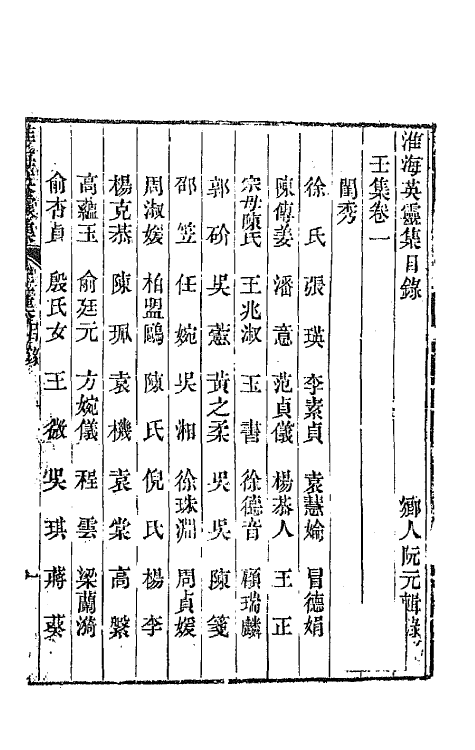 淮海英靈集目錄 鄉人阮元輯錄
壬集卷一
閨秀
徐氏 張瑛 李素貞 袁慧媮 冒德娟
陳傳姜 潘意 范貞儀 楊恭人 王正
宗母陳氏 王兆淑 玉書 徐德音 顧瑞麟
郭矽 吳蕙 黃之柔 吳吳 陳箋
邵笠 任婉 吳湘 徐珠淵 周貞媛
周淑媛 柏盟鷗 陳氏 倪氏 楊李
楊克恭 陳珮 袁機 袁棠 高縏
高蘊玉 俞廷元 方婉儀 程雲 梁蘭漪
俞杏貞 殷氏女 王微 吳琪 蔣葵